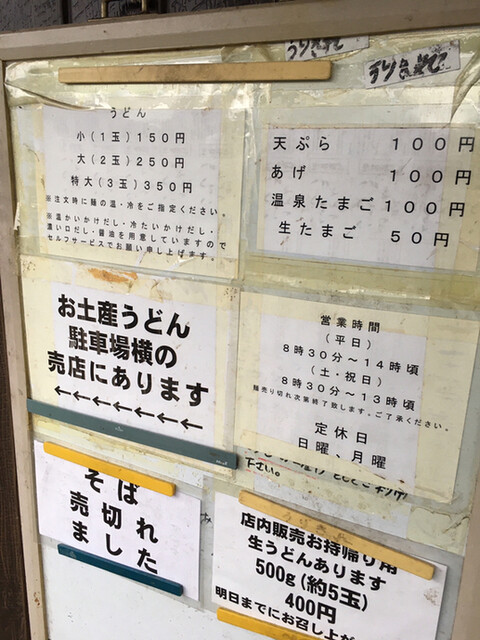 うどん
小(1玉)150円
大(2玉)250円
特大(3玉)350円
※注文時に麺の温・冷をご指定ください。
※温かいかけだし・冷たいかけだし・
濃い口だし・醤油を用意していますので
セルフサービスでお願い申し上げます。
天ぷら 100円
あげ 100円
温泉たまご 100円
生たまご 50円
お土産うどん
駐車場横の
売店にあります
←←←←←←←
営業時間
(平日)
8時30分~14時頃
(土・祝日)
8時30分~13時頃
麺売り切れ次第終了致します。ご了承ください。
定休日
日曜、月曜
下さい。
そば
売切れ
ました
店内販売お持帰り用
生うどんあります
500g(約5玉)
400円
明日までにお召し上が